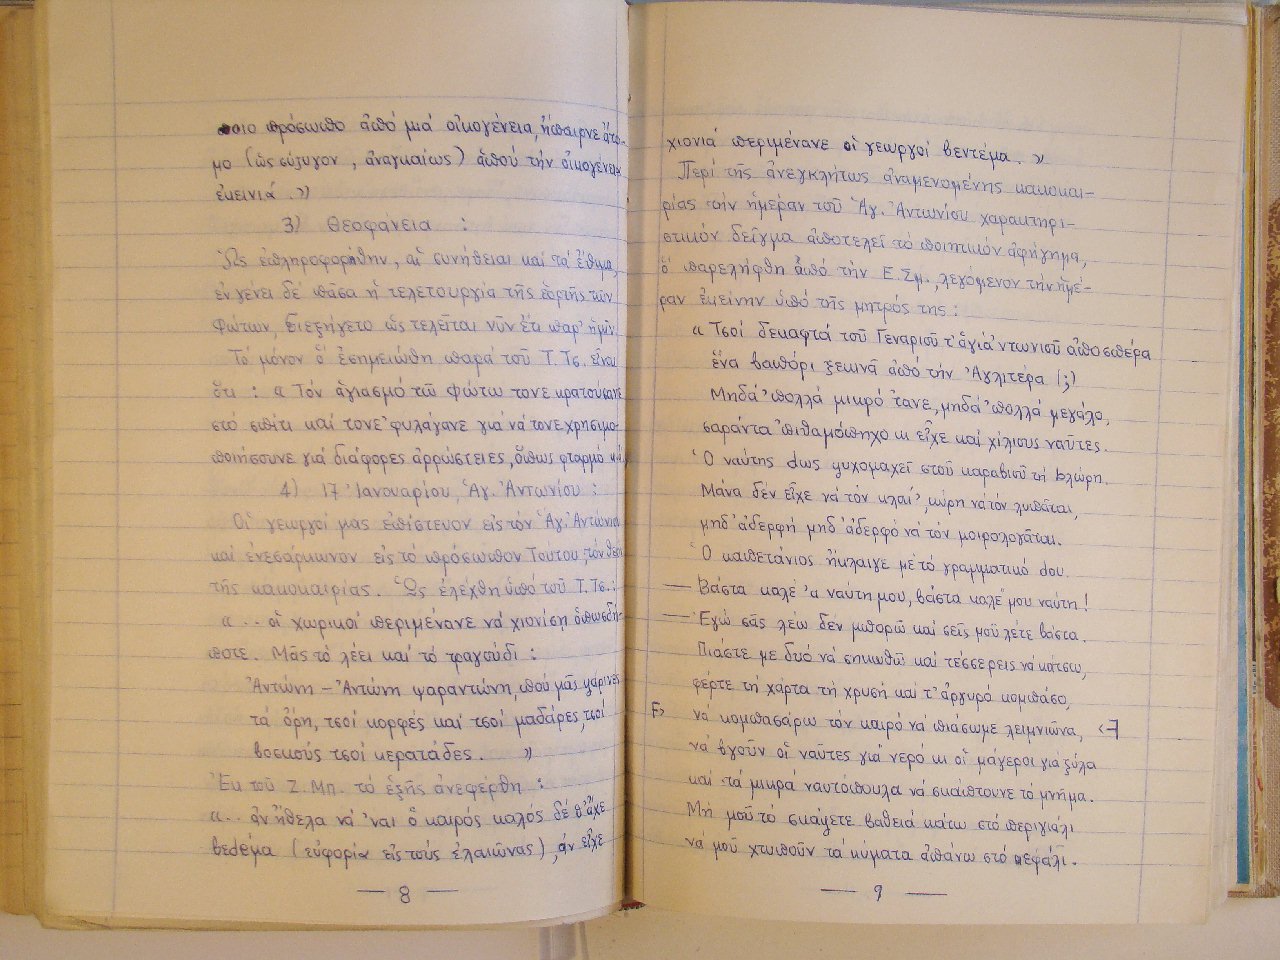 ποιο πρόσωπο ἀπό μιά οἰκογένεια, ἤπαιρνε ἄτο-
μο (ὡς σύζυγον, ἀναγκαίως) ἀπού τήν οἰκογένεια
ἐκεινιά.»
3) Θεοφάνεια :
Ὡς ἐπληροφορήθην, αἱ συνήθειαι καί τά ἔθιμα,
ἐν γένει δέ πᾶσα ἡ τελετουργία τῆς ἑορτῆς τῶν
Φώτων, διεξήγετο ὡς τελεῖται νῦν ἔτι παρ' ἡμῖν.
Τό μόνον ὅ ἐσημειώθη παρά τοῦ Τ. Τσ. εἶναι
ὅτι : « Τόν ἁγιασμό τῶ Φώτω τονε κρατούσανε
στό σπίτι καί τονε 'φυλάγανε γιά νά τονε χρησιμο-
ποιήσουνε γιά διάφορες ἀρρώστειες, ὅπως φταρμό κ.ἄ.
4) 17 Ἰανουαρίου, Ἁγ. Ἀντωνίου :
Οἱ γεωργοί μας ἐπίστευον εἰς τόν Ἅγ. Ἀντώνιον
καί ἐνεσάρκωνον εἰς τό πρόσωπον Τούτου, τόν θεό
τῆς κακοκαιρίας. Ὡς ἐλέχθη ὑπό τοῦ Τ. Τσ.:
«.. οἱ χωρικοί περιμένανε νά χιονίσῃ ὁπωσδή-
ποτε. Μᾶς τό λέει καί τό τραγούδι :
Ἀντώνη - Ἀντώνη ψαραντώνη, πού μᾶς ψάρινες
τά ὄρη, τσοί κορφές καί τσοί μαδάρες, τσοί
βοσκούς τσοί κερατάδες. »
Ἐκ τοῦ Ζ. Μπ. τό ἑξῆς ἀνεφέρθη :
«.. ἀν ἤθελα νά 'ναι ὁ καιρός καλός δέ θ' ἄχε
βεdέμα (εὐφορία εἰς τούς ἐλαιῶνας), ἀν εἶχε
— 8 —
χιονιά περιμένανε οἱ γεωργοί βεντέμα. »
Περί τῆς ἀνεγκλήτως ἀναμενομένης κακοκαι-
ρίας τήν ἡμέραν τοῦ Ἁγ. Ἀντωνίου χαρακτηρι-
στικόν δεῖγμα ἀποτελεῖ τό ποιητικόν ἀφήγημα,
ὅ παρελήφθη ἀπό τήν Ε. Σμ., λεγόμενον τήν ἡμέ-
ραν ἐκείνην ὑπό τῆς μητρός της :
« Τσοί δεκαφτά τοῦ Γεναριοῦ τ' ἁγιά ντωνιοῦ ἀποσπέρα
ἕνα βαπόρι ξεκινᾶ ἀπό τήν Ἀγλιτέρα (;)
Μηδά 'πολλά μικρό 'τανε, μηδά 'πολλά μεγάλο,
σαράντα 'πιθαμόπηχο κι εἶχε καί χίλιους ναῦτες.
Ὁ ναύτης dως ψυχομαχεῖ στοῦ καραβιοῦ τή bλώρη.
Μάνα δέν εἶχε νά τόν κλαί', κύρη νά τόν λυπᾶται,
μηδ' ἀδερφή μηδ' ἀδερφό νά τόν μοιρολογᾶται.
Ὁ καπετάνιος ἤκλαιγε μέ τό γραμματικό dου.
— Βάστα καλέ 'α ναύτη μου, βάστα καλέ μου ναύτη!
— Ἐγώ σᾶς λέω δέν μπορῶ καί σεῖς μοῦ λέτε βάστα.
Πιάστε με δυό νά σηκωθῶ καί τέσσερεις νά κάτσω,
φέρτε τή χάρτα τή χρυσή καί τ' ἀργυρό κομπάσο,
νά κομπασάρω τόν καιρό νά πιάσωμε λειμνιῶνα,
νά βγοῦν οἱ ναῦτες γιά νερό κι οἱ μάγεροι γιά ξύλα
καί τά μικρά ναυτόπουλα νά σκάπτουνε τό μνῆμα.
Μή μοῦ τό σκάψετε βαθειά κάτω στό περιγιάλι
νά μοῦ χτυποῦν τά κύματα ἀπάνω στό κεφάλι.
— 9 —